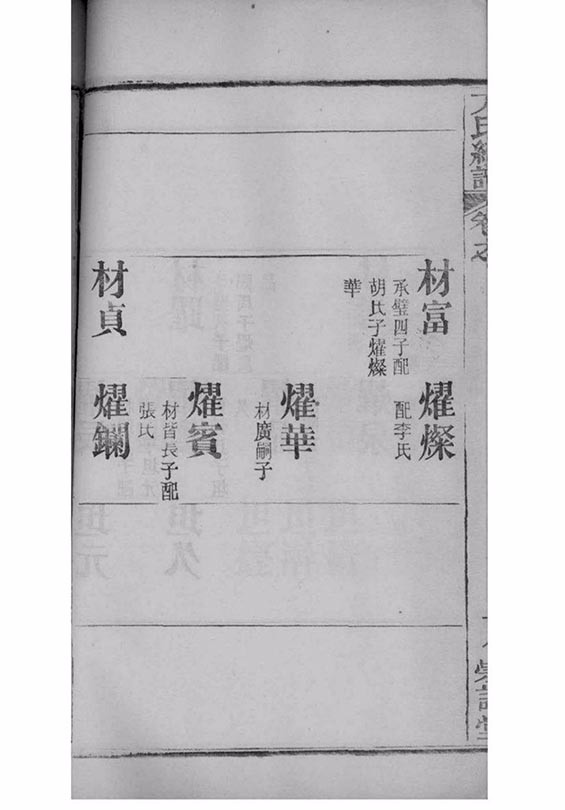 氏續譜
卷之
材富
承璧四子配
胡氏子燿燦
華
燿燦
配李氏
燿華
材廣嗣子
燿賓
材皆長子配
張氏
材貞
燿鑭